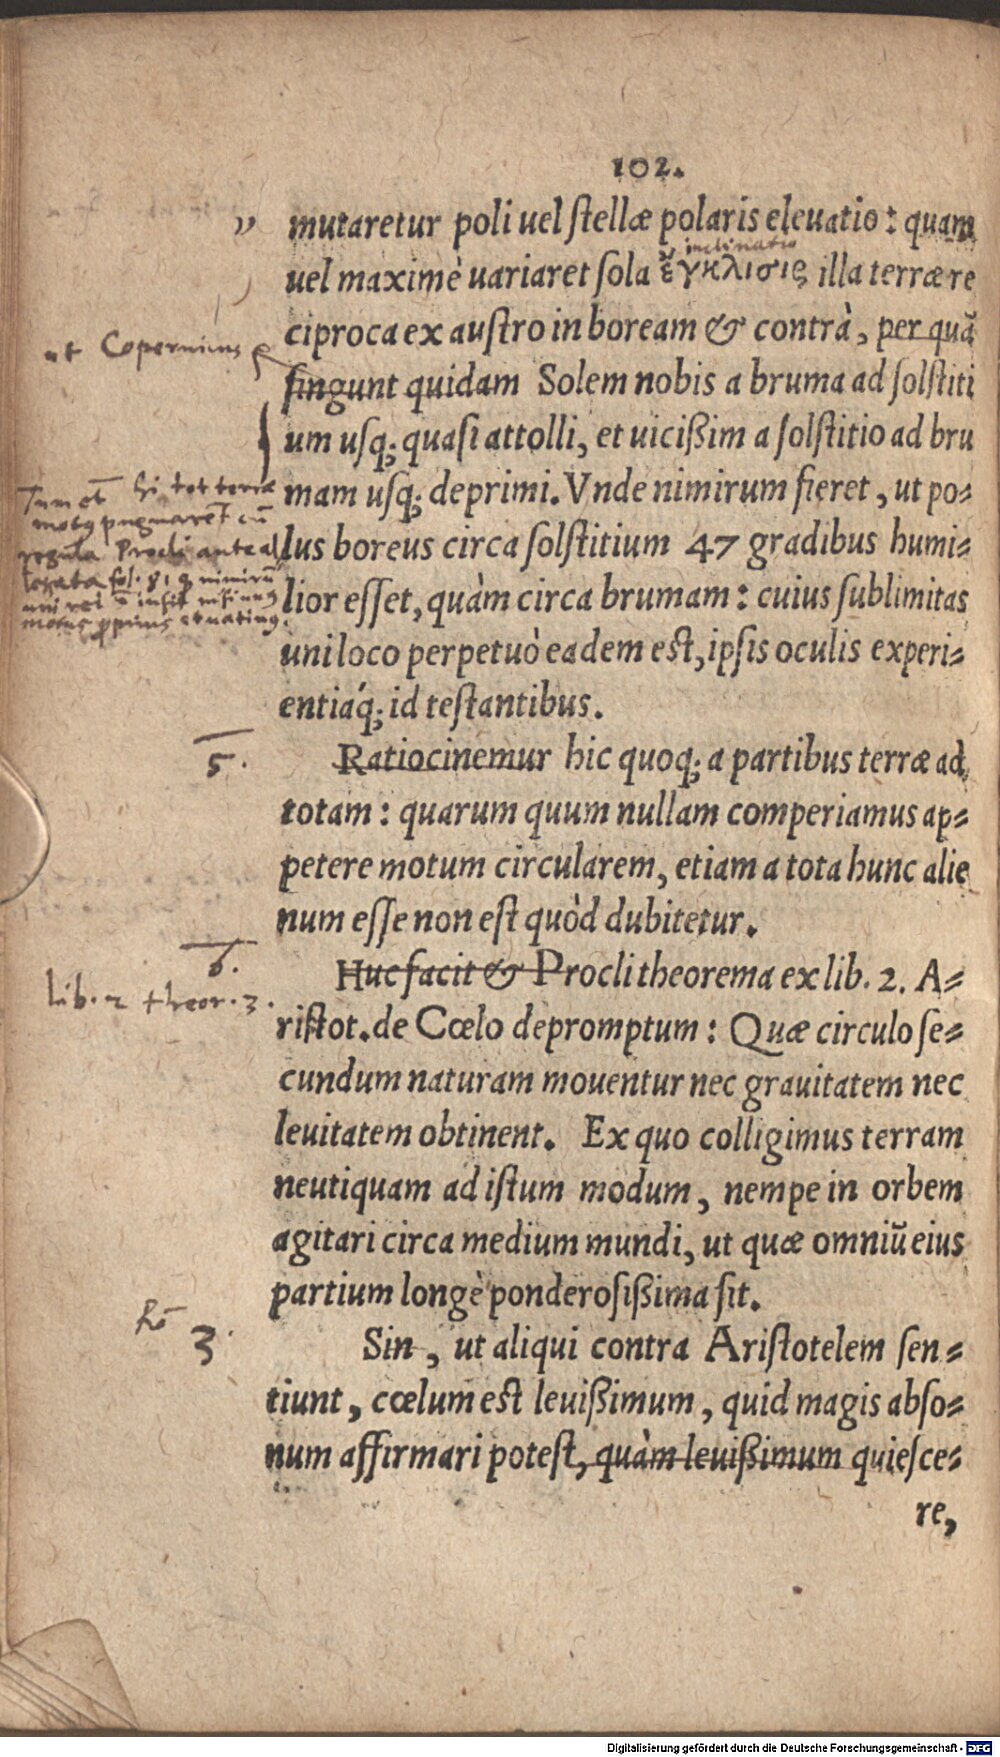 102.
mutaretur poli uel ſtellæ polaris eleuatio: quam
inclinatio
uel maximè uariaret ſola ἔγκλισις illa terræ re
ciproca ex auſtro in boream & contrà, per quã
ut Copernicus
fingunt quidam Solem nobis a bruma ad ſolſtiti
um uſq; quaſi attolli, et uicißim a ſolſtitio ad bru
mam uſq; deprimi. Vnde nimirum fieret, ut po-
lus boreus circa ſolſtitium 47 gradibus humi-
lior eſſet, quàm circa brumam: cuius ſublimitas
uni loco perpetuò eadem eſt, ipſis oculis experi-
entiáq; id teſtantibus.
Tum et hi tot terræ
motus pugnaret cũ
regula Procli ante al
legata fol. 81 nimirũ
5.
Ratiocinemur hic quoq; a partibus terræ ad
totam: quarum quum nullam comperiamus ap-
petere motum circularem, etiam a tota hunc alie
num eſſe non eſt quòd dubitetur.
6.
lib. 2 theor. 3.
Huc facit & Procli theorema ex lib. 2. A-
riſtot. de Cœlo depromptum: Quæ circulo ſe-
cundum naturam mouentur nec grauitatem nec
leuitatem obtinent. Ex quo colligimus terram
neutiquam ad iſtum modum, nempe in orbem
agitari circa medium mundi, ut quæ omniũ eius
partium longè ponderoſißima ſit.
3.
Sin, ut aliqui contra Ariſtotelem ſen-
tiunt, cœlum eſt leuißimum, quid magis abſo-
num affirmari poteſt, quàm leuißimum quieſce-
re,
Digitalisierung gefördert durch die Deutsche Forschungsgemeinschaft - DFG